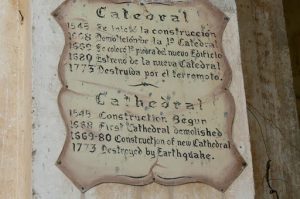 Catedral
1545 Se inició la construcción
1668 Demolición de la 1ª Catedral
1669 Se colocó 1ª piedra del nuevo Edificio
1680 Estreno de la nueva Catedral
1773 Destruida por el terremoto.
Cathedral
1545 Construction Begun
1668 First Cathedral demolished
1669-80 Construction of new Cathedral
1773 Destroyed by Earthquake.